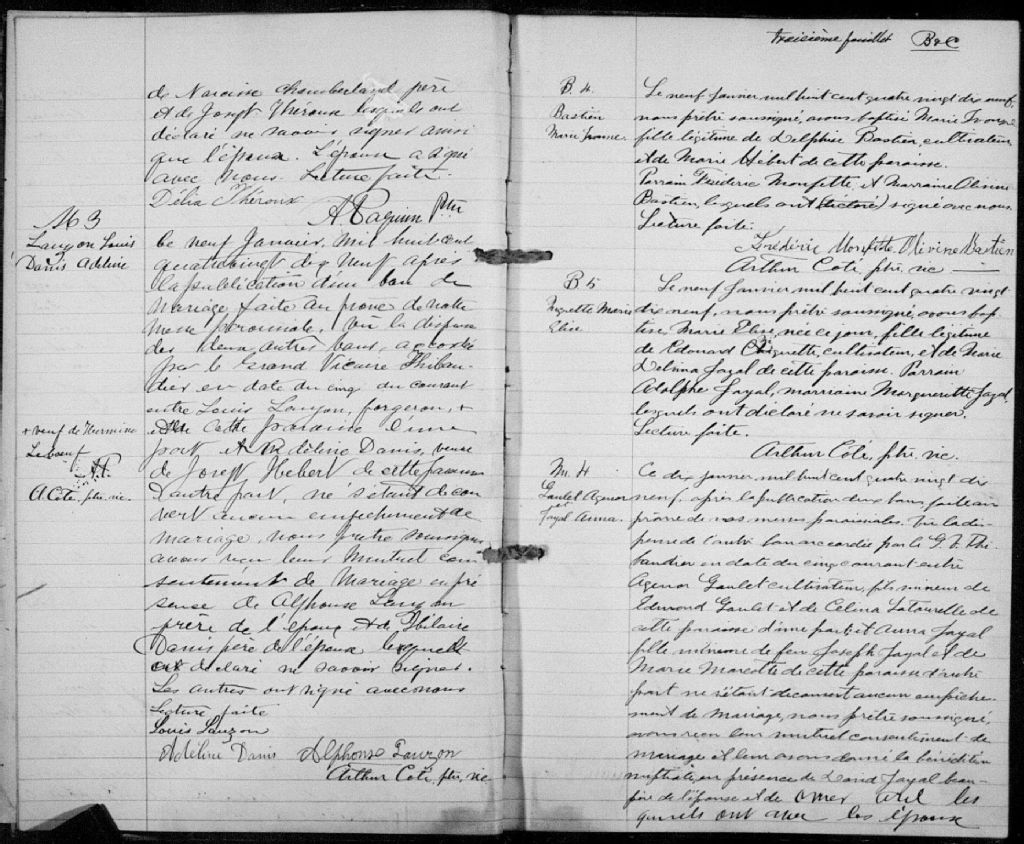 de Narcisse Chamberland père
et de Joseph Théroux lesquels ont
déclaré ne savoir signer ainsi
que l'époux. L'épouse a signé
avec nous. Lecture faite.
Délia Théroux
A Paquin Ptre
M 3
Lauzon Louis
Danis Adeline
Le neuf Janvier, mil huit cent
quatrevingt dix neuf après
la publication d'un ban de
Mariage faite au prone de notre
Messe paroissiale, vu la dispense
des deux autres bans, accordée
par le Grand Vicaire Thibau-
dier en date du cinq du courant
entre Louis Lauzon, forgeron, +
de cette paroisse d'une
+ veuf de Hermine
Leboeuf
A.P.
A Coté, ptre, vic.
part et Adéline Danis, veuve
de Joseph Hebert de cette paroisse
d'autre part, ne s'étant décou
vert aucun empêchement de
mariage, nous prêtre soussigné
avons reçu leur mutuel con
sentement de Mariage en pré
sence de Alphonse Lauzon
frère de l'époux et de Hilaire
Danis père de l'épouse lequel
a déclaré ne savoir signer.
Les autres ont signé avec nous
Lecture faite
Louis Lauzon
Adéline Danis Alphonse Lauzon
Arthur Coté, ptre, vic
treisième feuillet B & C
B. 4.
Bastien
Marie Ivonne.
Le neuf Janvier, mil huit cent quatre vingt dix neuf,
nous prêtre soussigné, avons baptisé Marie Ivonne
fille légitime de Delphise Bastien, cultivateur
et de Marie Hébert de cette paroisse.
Parrain Frédéric Monfette, et Marraine Olivine
Bastien, lesquels ont (déclaré) signé avec nous
Lecture faite.
Frédéric Monfette Olivine Bastien
Arthur Coté, ptre, vic
B 5
Miquette Marie
Elise
Le neuf Janvier mil huit cent quatre vingt
dix neuf, nous prêtre soussigné, avons bap
tisé Marie Elise, née ce jour, fille légitime
de Edouard Choquette, cultivateur, et de Marie
Delima Fayal de cette paroisse. Parrain
Adolphe Fayal, marraine Marguerite Fayal,
lesquels ont déclaré ne savoir signer.
Lecture faite.
Arthur Coté, ptre, vic.
M. 4
Goulet Agenor
et
Fayal Anna.
Ce dix janvier, mil huit cent quatre vingt dix
neuf, après la publication deux bans, faite au
prône de nos messes paroissiales. Vu la dis-
pense de l'autre ban accordée par le G. V. Thi-
baudier en date du cinq courant entre
Agenor Goulet cultivateur, fils mineur de
Edmond Goulet et de Celina Latourelle de
cette paroisse d'une part, et Anna Fayal
fille mineure de feu Joseph Fayal et de
Marie Marcotte de cette paroisse d'autre
part ne s'étant découvert aucun empêche-
ment de mariage, nous prêtre soussigné,
avons reçu leur mutuel consentement de
mariage et leur avons donné la bénédiction
nuptiale, en présence de David Fayal beau-
père de l'épouse et de Omer les
quels ont avec les époux